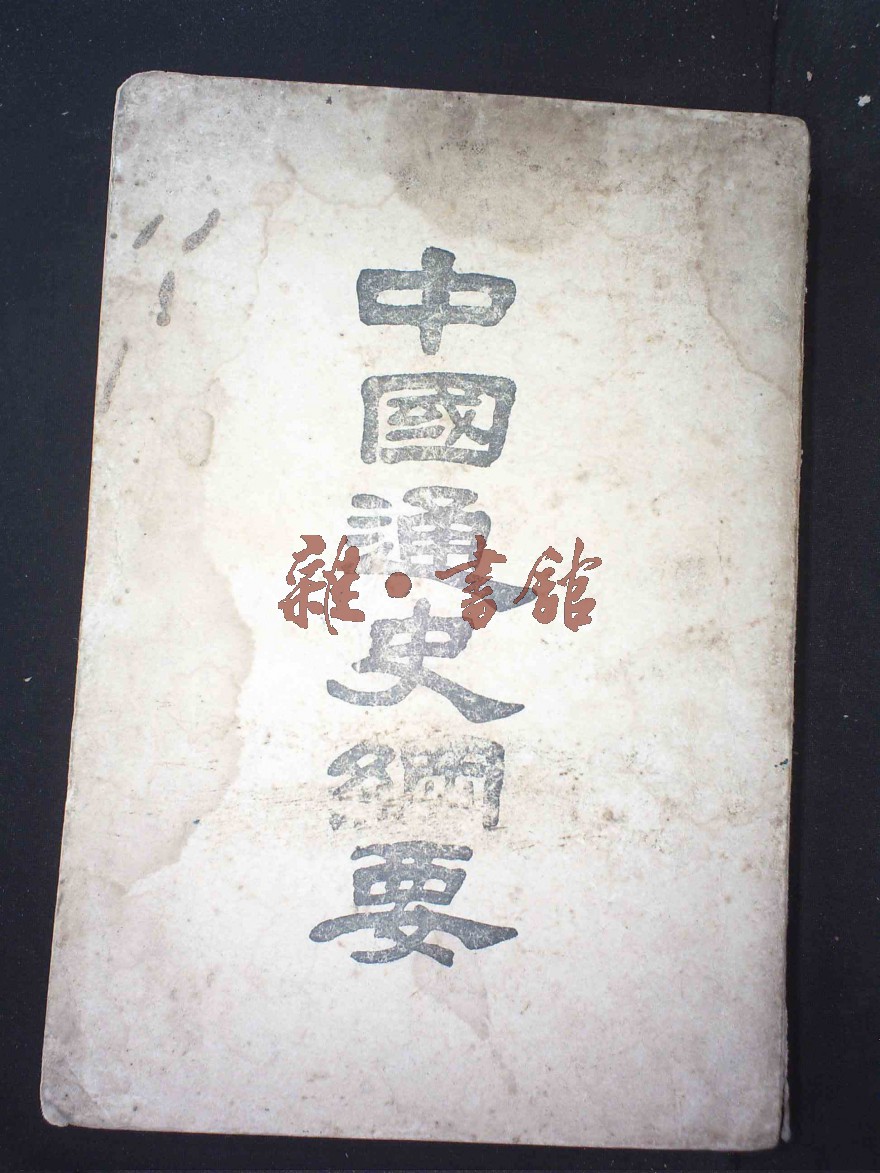 中國通史綱要
雜·書館